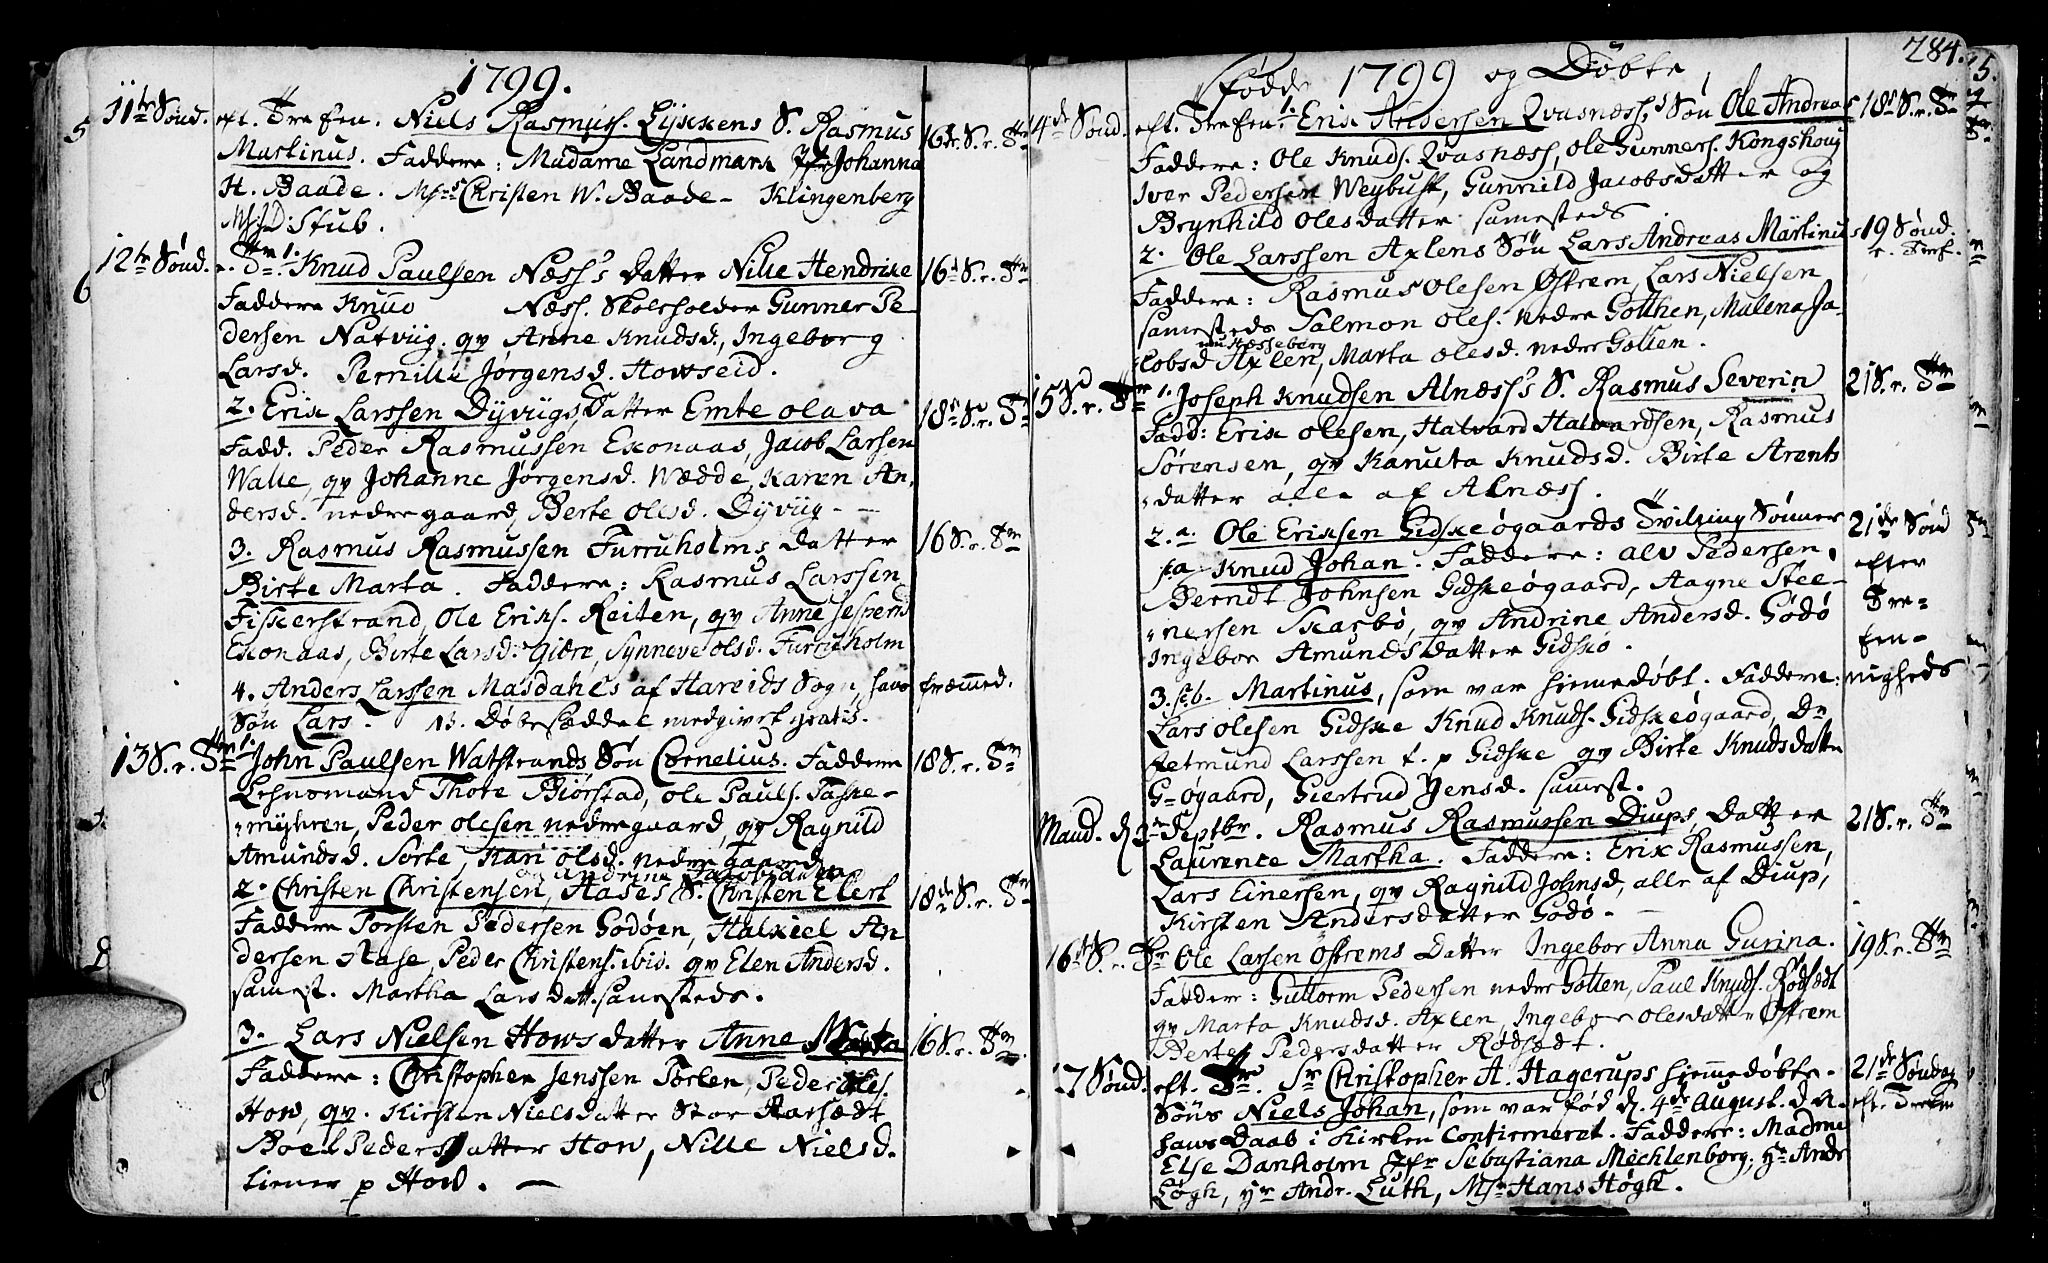 1799.
11te Sønd. eft. Trefen. Niels Rasmuss. Lykkens S. Rasmus 16de S. r. Tr
Martinus. Faddere: Madame Landmark Jfr Johanna
H. Baade. Msr Christen W. Baade - Klingenberg
Stub.
12te Sønd. r. Tr 1. Knud Paulsen Næss's datter Nille Hendrike 16d S. r. Tr
Faddere Knud Næss. Skoleholder Gunner Pe-
dersen Natviig. qv Anne Knudsd., Ingeborg
Larsd. Pernille Jørgensd. Howseid.
2. Erik Larssen Dyviigs Datter Emte Olava 18de S. r. Tr
Fadd. Peder Rasmussen Exonaas, Jacob Larsen
Walle, qv Johanne Jørgensd. Wedde, Karen An-
dersd. nedregaard, Berte Olesd. Dyviig - -
3. Rasmus Rasmussen Furruholms datter 16 S. r. Tr
Birte Marta. Faddere: Rasmus Larssen
Fiskerstrand, Ole Eriks. Reiten, qv Anne Jespersd
Exonaas, Birte Larsd. Giære, Synneve Olsd. Furruholm
4. Anders Larssen Masdahls af Hareids Sogn, hans fremmed.
Søn Lars. NB. Døbeseddel medgivet gratis.
13 S. r. Tr 1. John Paulsen Watstrands Søn Cornelius. Faddere 18 S. r. Tr
Lehnsmand Thore Biørstad, Ole Pauls. Taske-
myhren, Peder Olesen nedregaard, qv Ragnild
Amundsd. Sorte, Kari Olsd. nedregaard
og Andrine Jacobsdatter
2. Christen Christensen Hases S. Christen Elert 18de S. r. Tr
Faddere Torsten Pedersen Godøen, Halkiel An-
dersen Hase, Peder Christens. ibid. qv Elen Andersd.
samest. Martha Larsdatt. samesteds.
3. Lars Nielsen Hows datter Anne Marta 16 S. r. Tr
Faddere: Christopher Jenssen Torlen, Peder Oles.
How, qv. Kirsten Nielsdatter Stor Aarsædt
Boel Pedersdatter How, Nille Nielsd.
tiener p How. -
Fødde 1799 og Døbte 284.
14de Sønd. eft. Trefen. 1. Erik Andersen Qvasnæss's Søn Ole Andreas 18 S. r. Tr
Faddere: Ole Knuds. Qvasnæss, Ole Gunners. Kongshoug
Iver Pedersen Weybust, Gunnild Jacobsdatter og
Brynhild Olesdatter samesteds
2. Ole Larssen Axlens Søn Lars Andreas Martinus 19 Sønd. r. Tref.
Faddere: Rasmus Olesen Østrem, Lars Nielsen
samesteds Salmon Oles. nedre Gotthen, Malena Ja-
nu Hesseberg
cobsd Axlen, Marta Olesd. nedre Gotten.
15 S. r. Tr 1. Joseph Knudsen Alnæss's S. Rasmus Severin 21 S. r. Tr
Fadd: Erik Olesen, Halvard Halvardsen, Rasmus
Sørensen, qv Kanuta Knudsd. Birte Arents
datter alle af Alnæss.
2. a. Ole Eriksen Gidskeøgaards Tvilling Sønner 21de Sønd efter Tre- fen- nigheds
Knud Johan. Faddere: Alv Pedersen,
Berndt Johnsen Gidskeøgaard, Aagne Stee-
nersen Skarbø, qv Andrine Andersd. Godø
Ingebor Amundsdatter Gidskø.
3. b. Martinus, som var hiemedøbt. Faddere:
Lars Olesen Gidske Knud Knuds. Gidskeøgaard, Dr
Aetmund Larssen t. p Gidske qv Birte Knudsdatter
G-øgaard, Giertrud Jensd. samest.
Maad. d 2n Septbr. Rasmus Rasmussen Diups, Datter 21 S. r. Tr
Laurence Martha. Faddere: Erik Rasmussen,
Lars Einersen, qv Ragnild Johnsd, alle af Diup,
Kirsten Andersdatter Godø. -
16de S. r. Tr Ole Larsen Østrems Datter Ingebor Anna Gurina. 19 S. r. Tr
Faddere: Guttorm Pedersen nedre Gotten, Paul Knuds. Rødsædt
qv Marta Knudsd. Axlen, Ingebor Olesdatter Østrem
Berte Pedersdatter Rødsædt.
17 Sønd. eft. Tre. Sr Christopher A. Hagerups hiemmedøbte 21de Søndag eft. Trefen
Søns Niels Johan, som var fød d. 4de August. da
hans Daab i Kirken Confirmeret. Faddere: Madme
Else Danholm Jfr Sebastiana Mechlenborg, Hr Andr
Løgh, Hr Andr. Luth, Msr Hans Høgh.